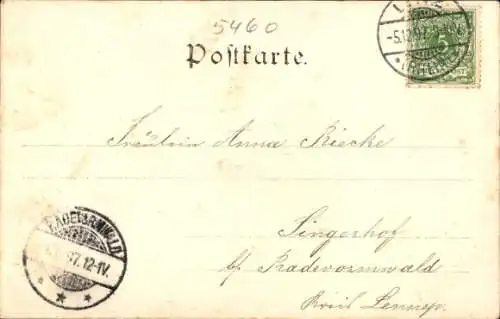 5460
Postkarte.
-5.12.97.
5
Fräulein Anna Riecke
Singerhof
b/ Radevormwald
Kreis Lennep.
RADEVORMWALD
97.12-1V.